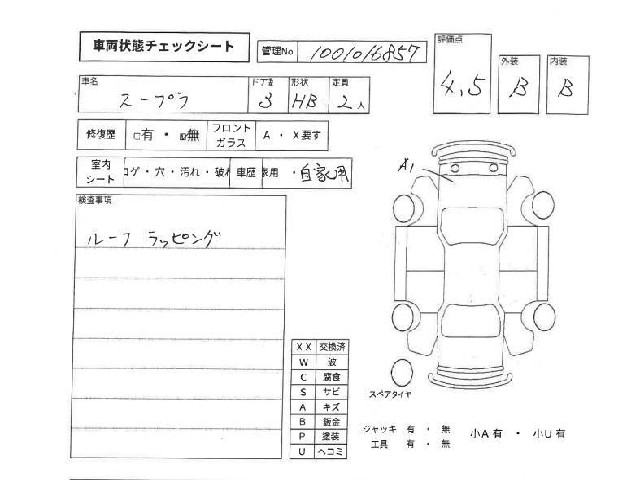 車両状態チェックシート
管理No 1001016857
評価点 4.5
外装 B
内装 B
車名 スープラ
ドア数 3
形状 HB
定員 2人
修復歴 □有 ・ ☑無
フロントガラス A ・ X要す
室内シート コゲ・穴・汚れ・破れ
車歴 家用 ・自家用
検査事項
ルーフ ラッピング
A1
XX 交換済
W 波
C 腐食
S サビ
A キズ
B 鈑金
P 塗装
U ヘコミ
スペアタイヤ
ジャッキ 有 ・ 無
工具 有 ・ 無
小A 有 ・ 小U 有